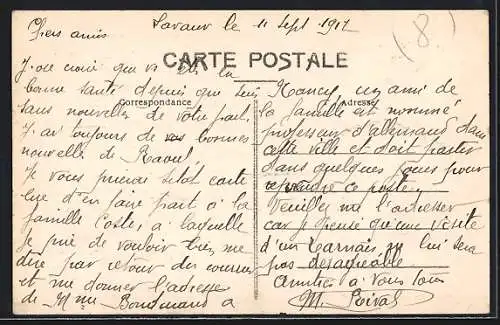 Lavaur le 11 Sept 1917
Chers amis
(8)
CARTE POSTALE
Correspondance
Adresse
J'ose croire que vs êtes en
bonne santé depuis que suis
sans nouvelles de votre part.
J'ai toujours de vos bonnes
nouvelles de Raoul,
Je vous prierai sitôt carte
lue d'en faire part à la
famille Coste, à laquelle
Je prie de vouloir bien me
dire par retour du courrier
et me donner l'adresse
de Mme Bousmaud a
Nancy, un ami de
la famille est nommé
professeur d'allemand dans
cette ville et doit partir
dans quelques jours pour
rejoindre ce poste.
Veuillez me l'adresser
car je pense qu'une visite
d'un Tarnais ne lui sera
pas désagréable
Amitiés à Vous tous
M.